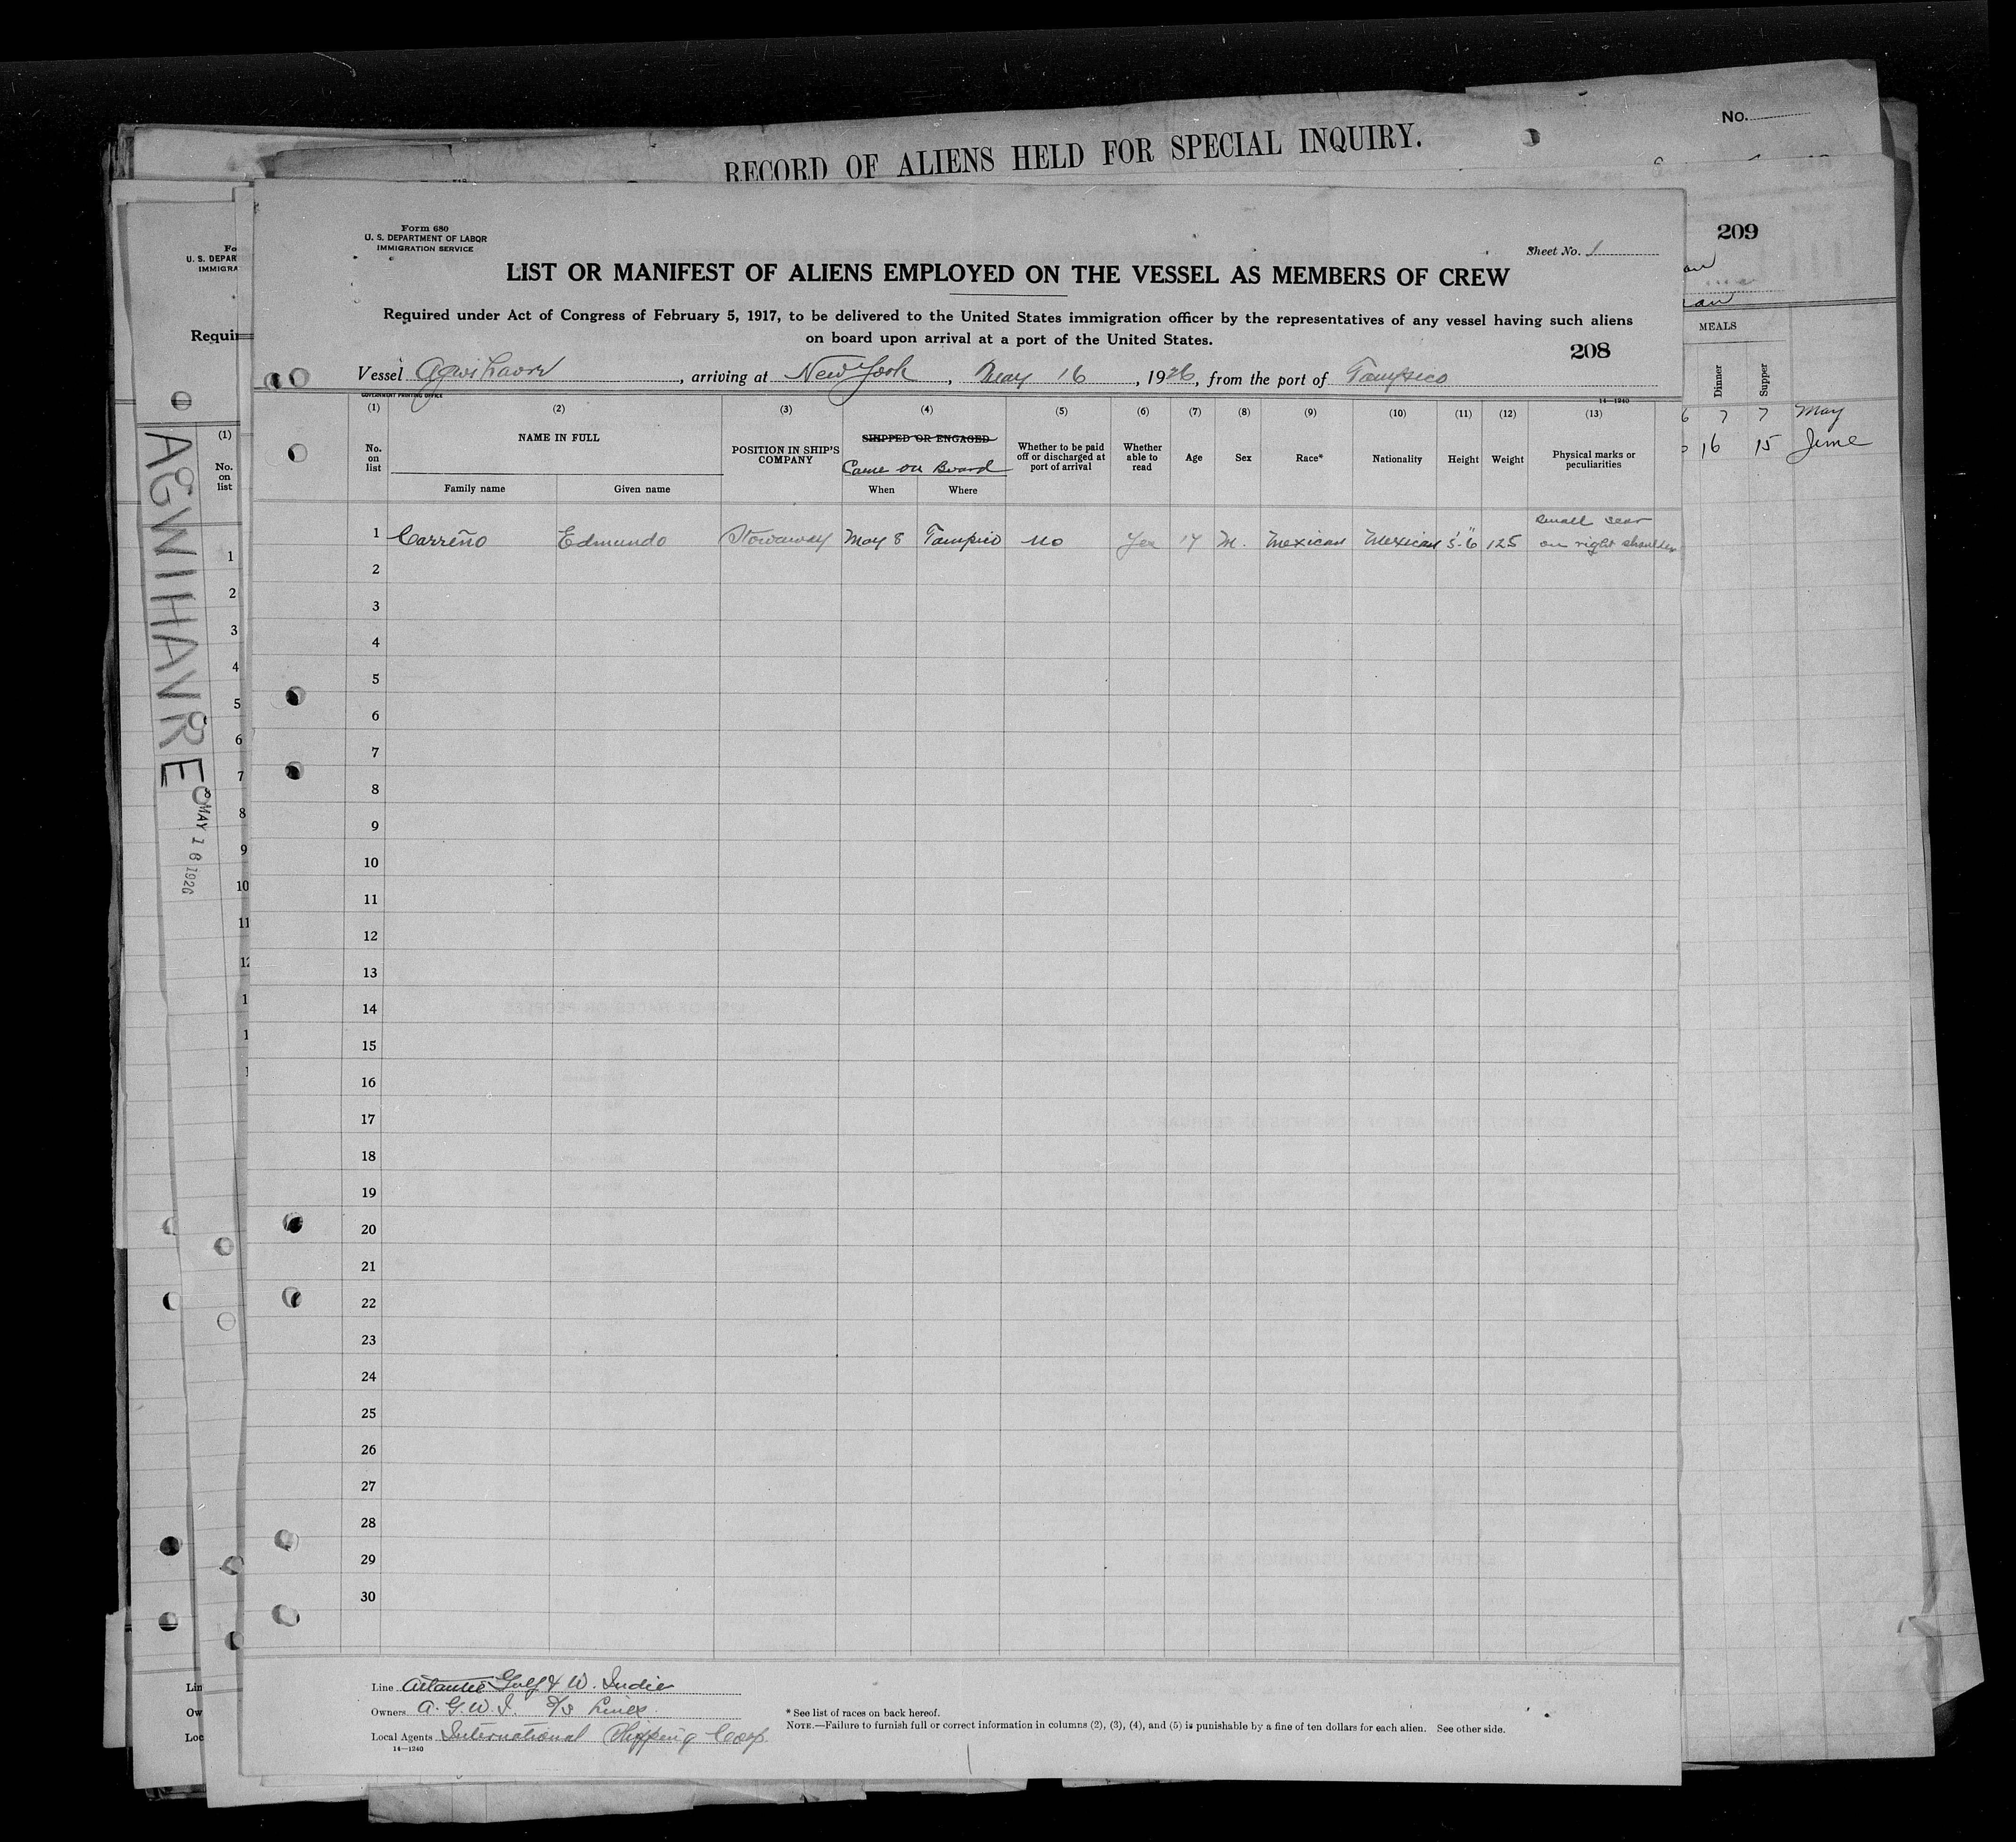 No.
RECORD OF ALIENS HELD FOR SPECIAL INQUIRY.
209
MEALS
Dinner
Supper
6 7 7 May
16 15 June
Form 680
U. S. DEPARTMENT OF LABOR
IMMIGRATION SERVICE
Sheet No. 1
LIST OR MANIFEST OF ALIENS EMPLOYED ON THE VESSEL AS MEMBERS OF CREW
Required under Act of Congress of February 5, 1917, to be delivered to the United States immigration officer by the representatives of any vessel having such aliens
on board upon arrival at a port of the United States.
208
Vessel Agwihavre, arriving at New York, May 16, 1926, from the port of Tampico
GOVERNMENT PRINTING OFFICE
14—1240
(1) (2) (3) (4) (5) (6) (7) (8) (9) (10) (11) (12) (13)
No. on list
NAME IN FULL
Family name
Given name
POSITION IN SHIP'S COMPANY
SHIPPED OR ENGAGED
Came on Board
When
Where
Whether to be paid off or discharged at port of arrival
Whether able to read
Age
Sex
Race*
Nationality
Height
Weight
Physical marks or peculiarities
1 Carreño Edmundo Stowaway May 8 Tampico no Yes 17 M. Mexican Mexican 5'-6" 125 small scar on right shoulder
2
3
4
5
6
7
8
9
10
11
12
13
14
15
16
17
18
19
20
21
22
23
24
25
26
27
28
29
30
Line Atlantic Gulf & W. Indie
Owners A. G. W. I. S/S Lines
Local Agents International Shipping Corp.
14—1240
* See list of races on back hereof.
NOTE.—Failure to furnish full or correct information in columns (2), (3), (4), and (5) is punishable by a fine of ten dollars for each alien. See other side.
Fo
U. S. DEPAR
IMMIGRA
Requir
(1)
No.
on
list
1
2
3
4
5
6
7
8
9
10
11
12
Lin
Ow
Loc
AGWIHAVRE
MAY 16 1926